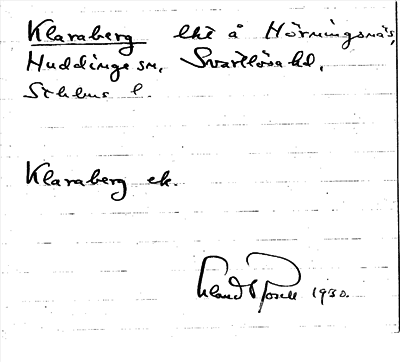 Klaraberg lht å Hörningsnäs,
Huddinge sn, Svartlösa hd,
Sthlms l.
Klaraberg ek.
1930.